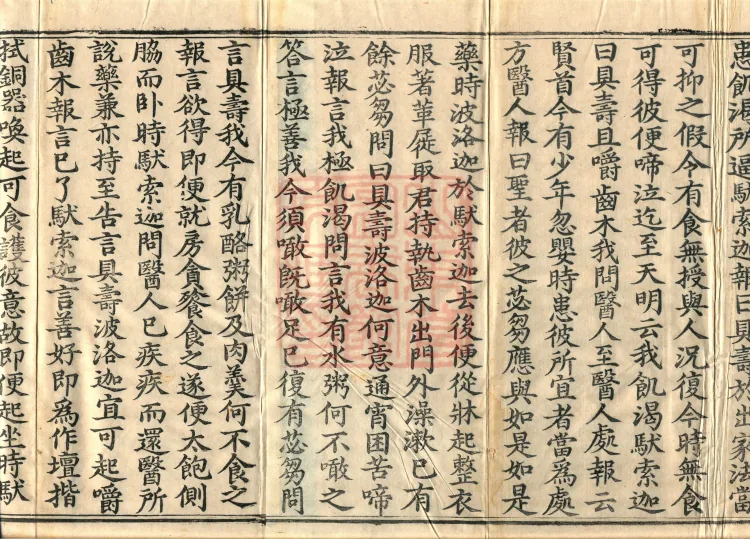 患飢渴所逼馱索迦報曰具壽於出家法當
可抑之假令有食無授與人況復今時無食
可得彼便啼泣迄至天明云我飢渴馱索迦
曰具壽且嚼齒木我問醫人至醫人處報云
賢首今有少年忽嬰時患彼所宜者當為處
方醫人報曰聖者彼之苾芻應與如是如是
藥時波洛迦於馱索迦去後便從牀起整衣
服著革屣取君持執齒木出門外澡漱已有
餘苾芻問曰具壽波洛迦何意通宵困苦啼
泣報言我極飢渴問言我有水粥何不噉之
答言極善我今須噉既噉足已復有苾芻問
言具壽我今有乳酪粥餅及肉羹何不食之
報言欲得即便就房貪餮食之遂便太飽側
脇而卧時馱索迦問醫人已疾疾而還醫所
說藥兼亦持至告言具壽波洛迦宜可起嚼
齒木報言已了馱索迦言善好即為作壇揩
拭銅器喚起可食護彼意故即便起坐時馱